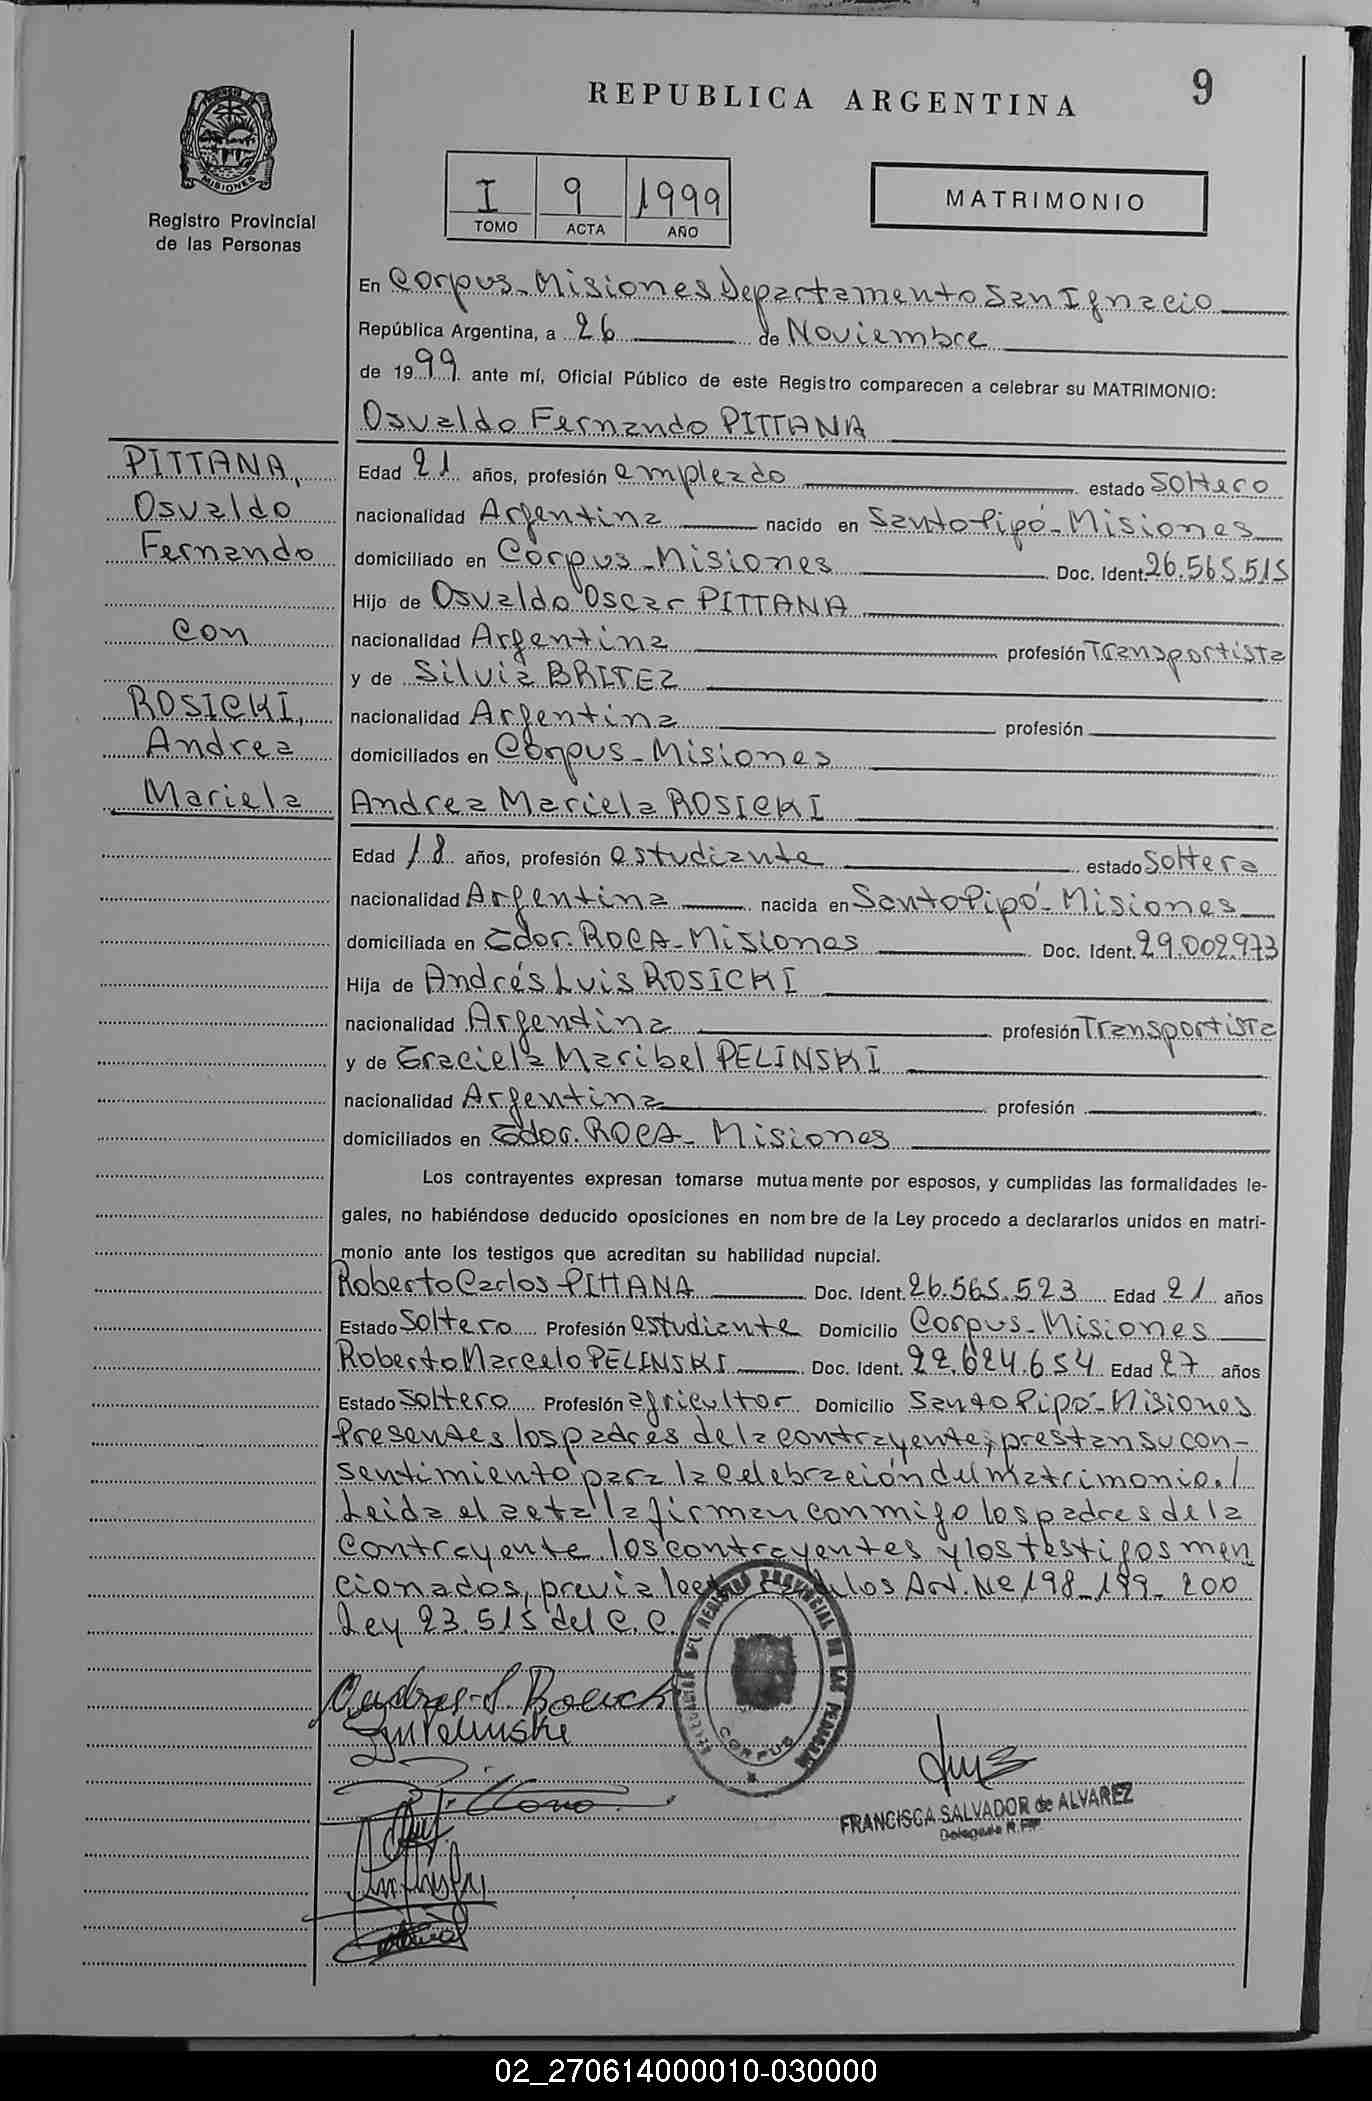 REPUBLICA ARGENTINA
9
MISIONES
Registro Provincial
de las Personas
I 9 1999
TOMO ACTA AÑO
MATRIMONIO
En Corpus-Misiones Departamento San Ignacio
República Argentina, a 26 de Noviembre
de 1999 ante mí, Oficial Público de este Registro comparecen a celebrar su MATRIMONIO:
Osvaldo Fernando PITTANA
PITTANA,
Osvaldo
Fernando
con
ROSICKI,
Andrea
Mariela
Edad 21 años, profesión empleado estado Soltero
nacionalidad Argentina nacido en Santo Pipó-Misiones
domiciliado en Corpus-Misiones Doc. Ident. 26.565.515
Hijo de Osvaldo Oscar PITTANA
nacionalidad Argentina profesión Transportista
y de Silvia BRITEZ
nacionalidad Argentina profesión
domiciliados en Corpus-Misiones
Andrea Mariela ROSICKI
Edad 18 años, profesión estudiante estado Soltera
nacionalidad Argentina nacida en Santo Pipó-Misiones
domiciliada en Gdor. ROCA-Misiones Doc. Ident. 29.002.973
Hija de Andrés Luis ROSICKI
nacionalidad Argentina profesión Transportista
y de Graciela Maribel PELINSKI
nacionalidad Argentina profesión
domiciliados en Gdor. ROCA- Misiones
Los contrayentes expresan tomarse mutuamente por esposos, y cumplidas las formalidades le-
gales, no habiéndose deducido oposiciones en nombre de la Ley procedo a declararlos unidos en matri-
monio ante los testigos que acreditan su habilidad nupcial.
Roberto Carlos PITTANA Doc. Ident. 26.565.523 Edad 21 años
Estado Soltero Profesión estudiante Domicilio Corpus-Misiones
Roberto Marcelo PELINSKI Doc. Ident. 22.624.654 Edad 27 años
Estado Soltero Profesión agricultor Domicilio Santo Pipó-Misiones
Presentes los padres de la contrayente, prestan su con-
sentimiento para la celebración del matrimonio.
Leida el acta la firman conmigo los padres de la
contrayente los contrayentes y los testigos men
cionados, previa de los Art. Nº 198-199-200
Ley 23.515 del C.C.
DELEGACIÓN DEL REGISTRO PROVINCIAL DE LAS PERSONAS
CORPUS
FRANCISCA SALVADOR de ALVAREZ
Delegada R.P.P.
02_270614000010-030000